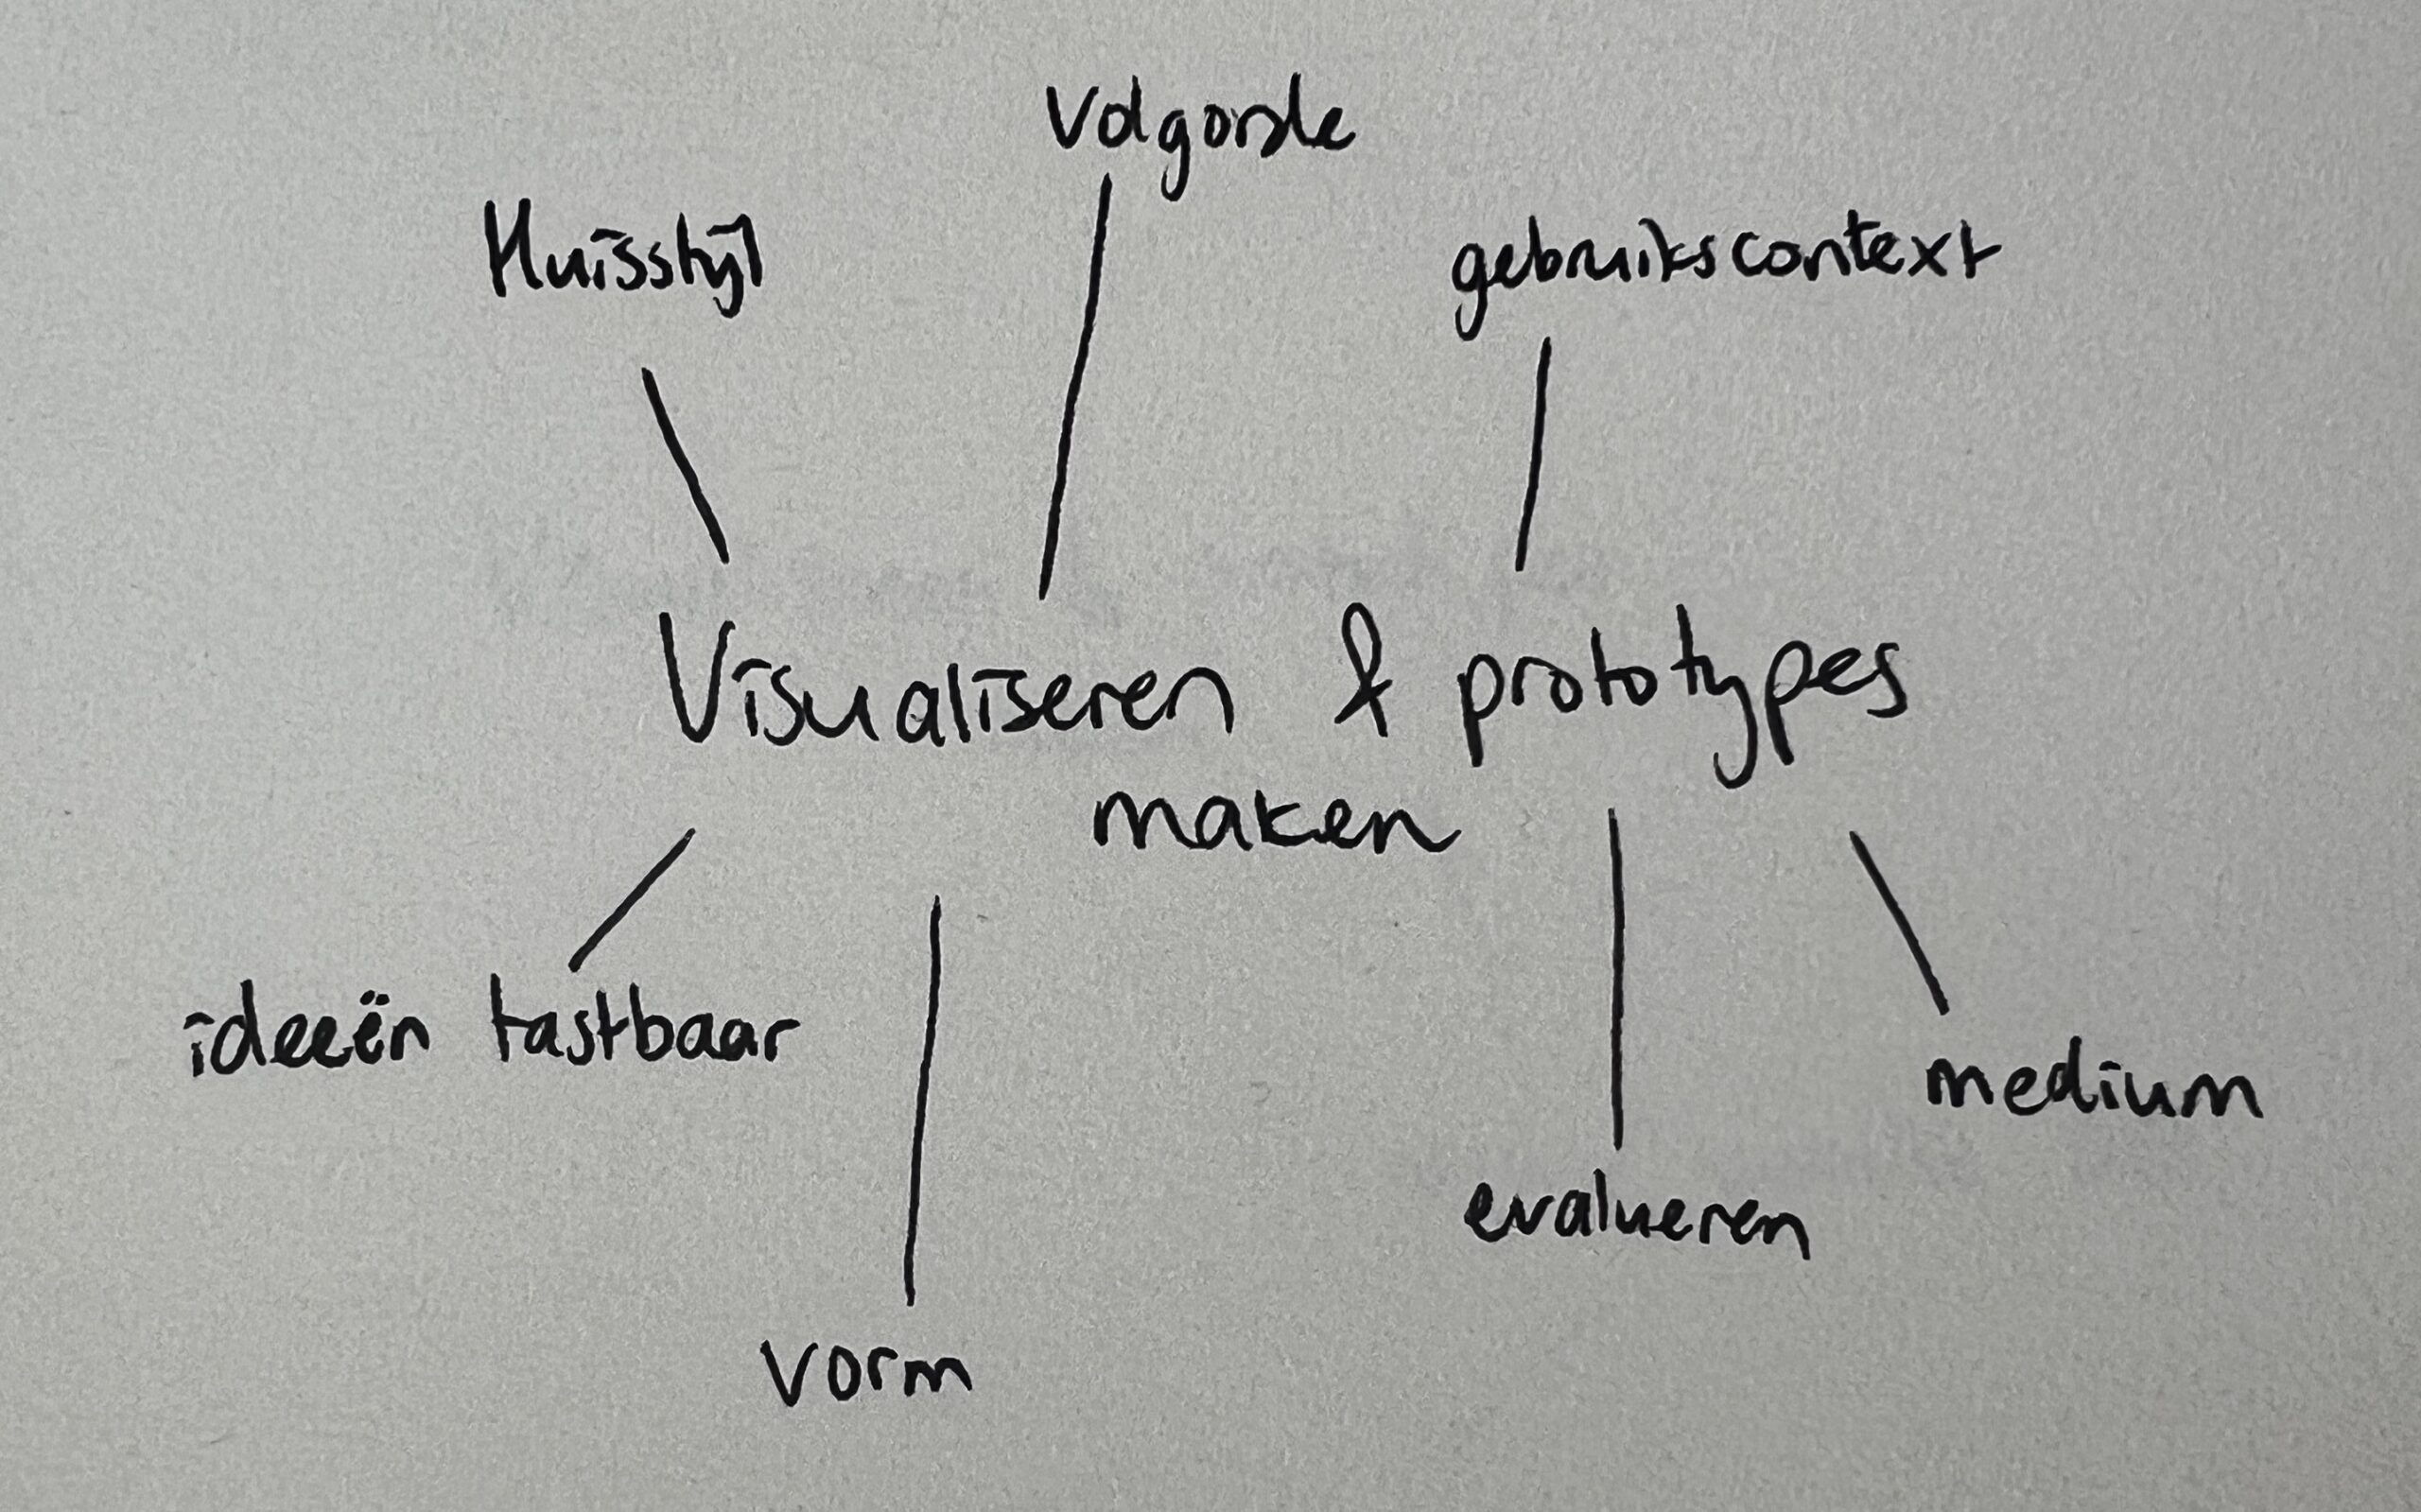 Volgorde
Huisstijl
gebruikscontext
Visualiseren & prototypes
maken
ideeën tastbaar
medium
evalueren
vorm